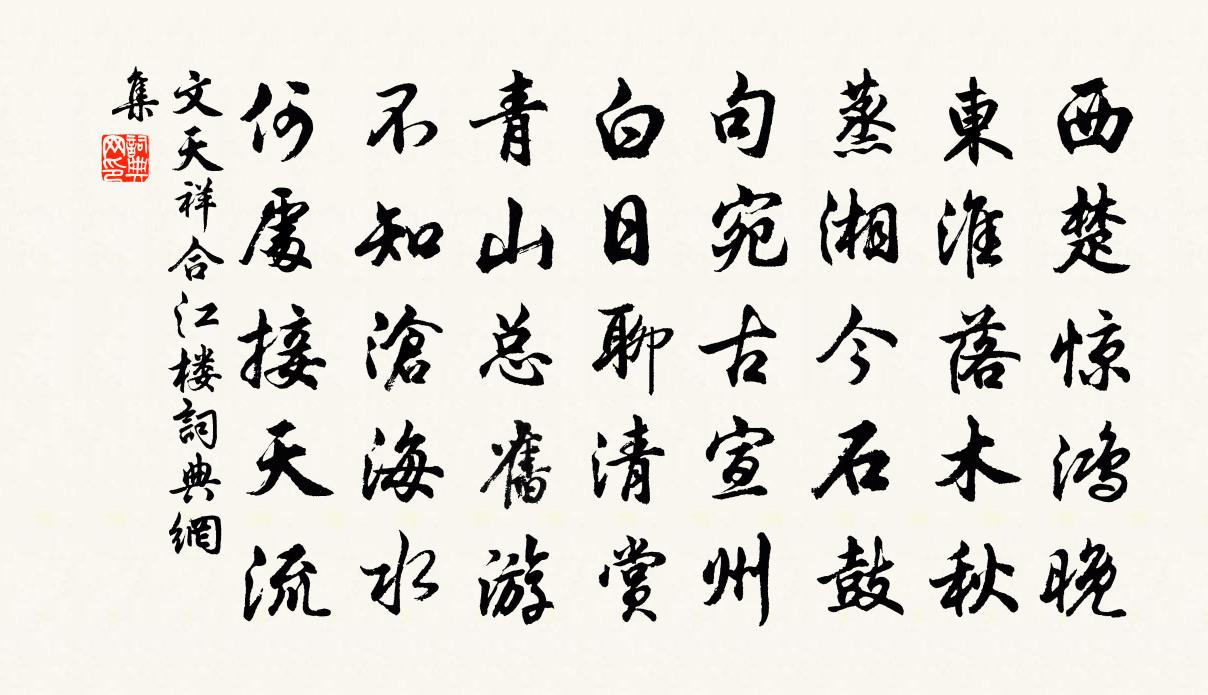 西楚惊鸿晚
東淮落木秋
蒸湘今石鼓
句宛古宣州
白日聊清赏
青山总舊游
不知滄海水
何處接天流
文天祥合江楼詞典網
集
詞典網印